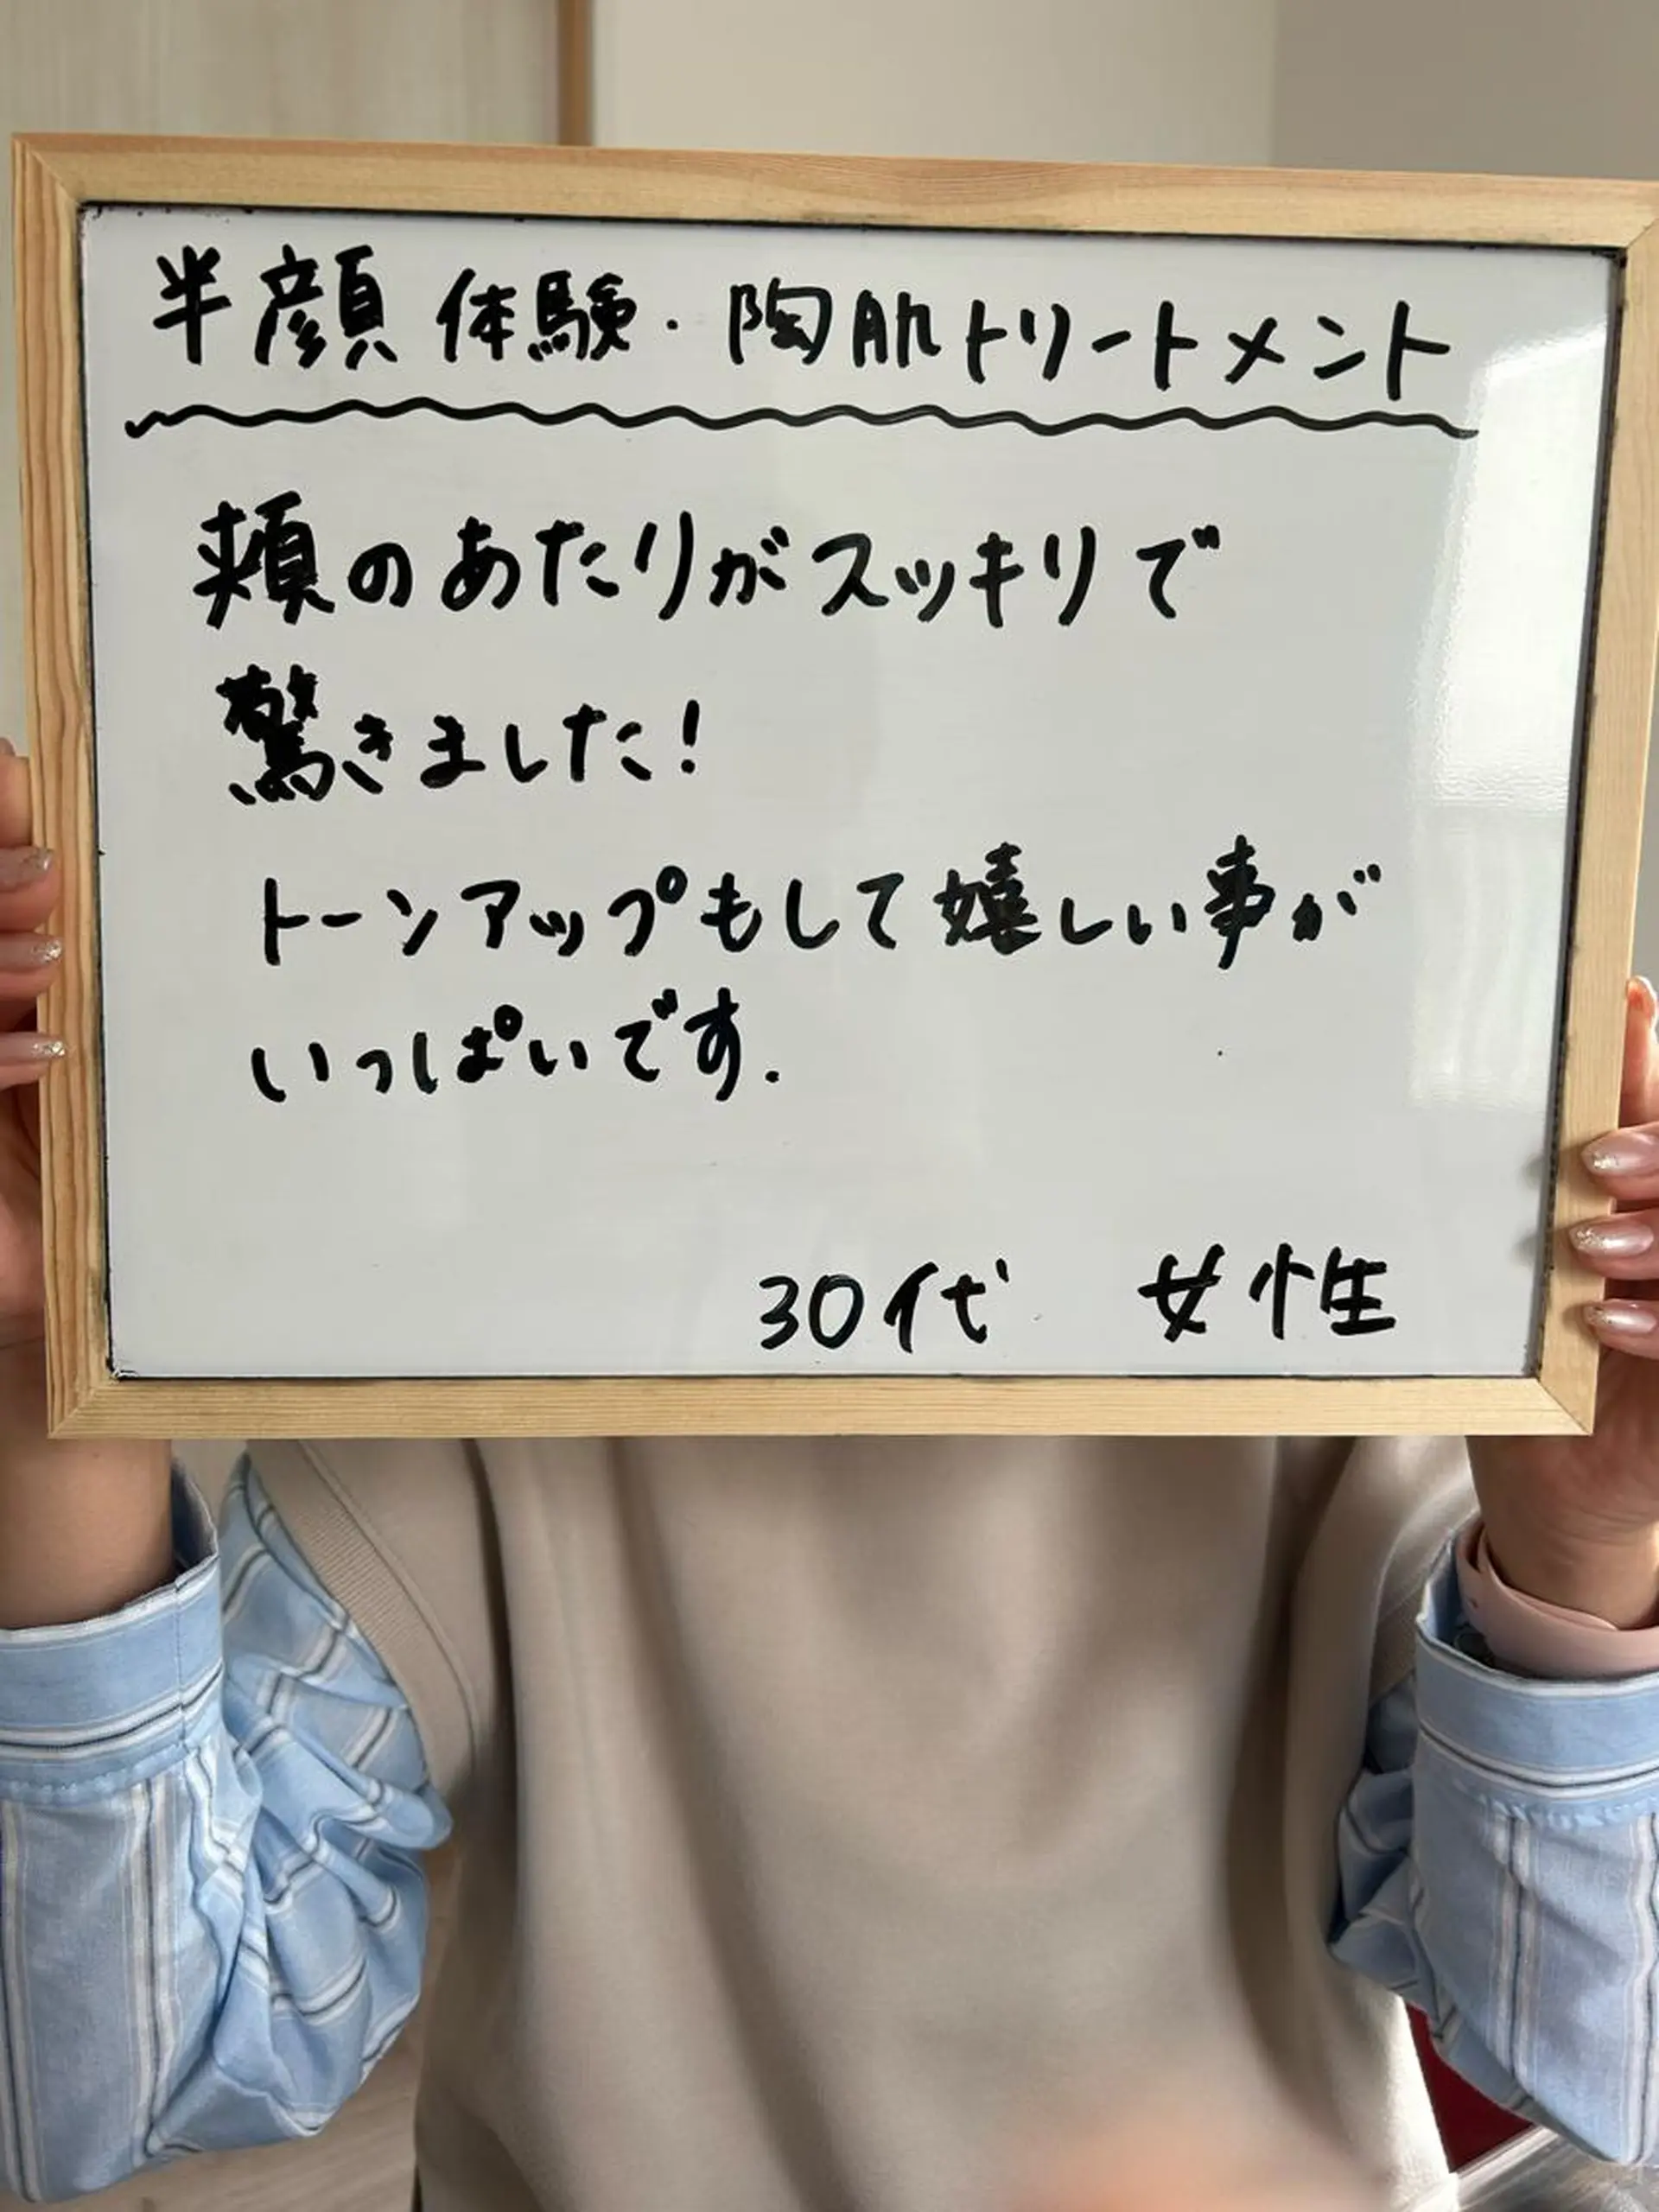 半顔体験・陶肌トリートメント
頬のあたりがスッキリで
驚きました!
トーンアップもして嬉しい事が
いっぱいです.
30代 女性